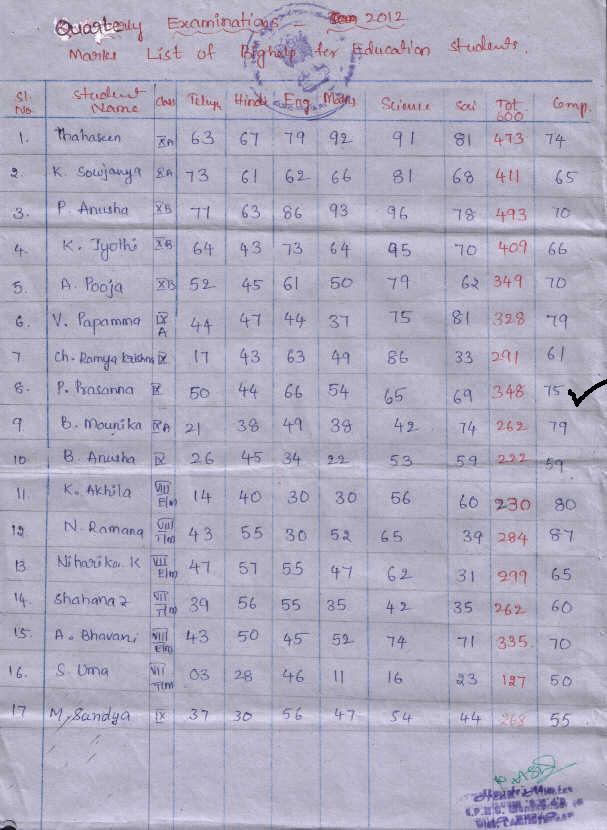 Quarterly Examinations - 2012
Marks List of Bighelp for Education Students.
Sl. No. Student Name Class Telugu Hindi Eng Maths Science Soi Tot 600 Comp.
1. Thahaseen XA 63 67 79 92 91 81 473 74
2. K. Sowjanya XA 73 61 62 66 81 68 411 65
3. P. Anusha XB 71 63 86 93 96 78 493 70
4. K. Jyothi XB 64 43 73 64 95 70 409 66
5. A. Pooja XB 52 45 61 50 79 62 349 70
6. V. Papamma IX A 44 47 44 37 75 81 328 79
7 Ch. Ramya Krishna IX 17 43 63 49 86 33 291 61
8. P. Prasanna IX 50 44 66 54 65 69 348 75
9 B. Mounika IXA 21 38 49 38 42 74 262 79
10 B. Anusha IX 26 45 34 22 53 59 222 59
11. K. Akhila VIII E/m 14 40 30 30 56 60 230 80
12 N. Ramana VIII T/m 43 55 30 52 65 39 284 87
13 Niharika. K VII E/m 47 57 55 47 62 31 299 65
14. Shahana 2 VII T/m 39 56 55 35 42 35 262 60
15. A. Bhavani VIII E/m 43 50 45 52 74 71 335 70
16. S. Uma VII T/m 03 28 46 11 16 23 127 50
17 M. Sandya IX 37 30 56 47 54 44 268 55